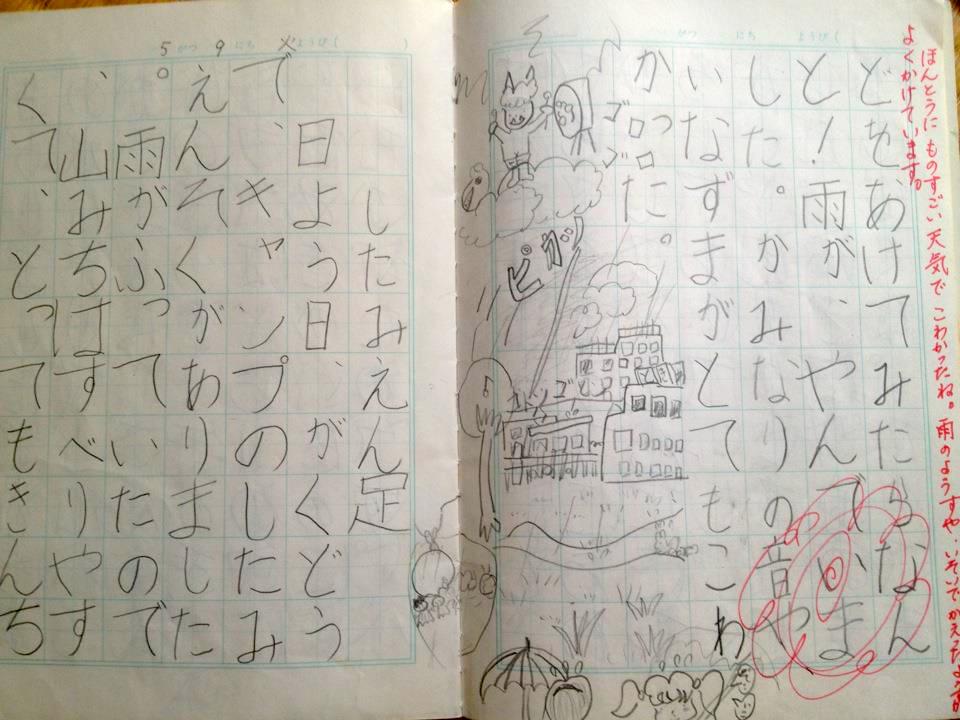 ほんとうに ものすごい 天気で こわかったね。雨のようすや、いそいでかえったようすが
よくかけています。
がつ にち ようび
どをあけてみたらなん
と！雨が、やんでいま
した。かみなりの音や
いなずまがとてもこわ
かった。
ゴロゴロ
ピカッ
5がつ 9にち 火ようび( )
したみえん足
日よう日、がくどう
で、キャンプのしたみ
えんそくがありました
。雨がふっていたので
、山みちはすべりやす
くて、とってもきんち